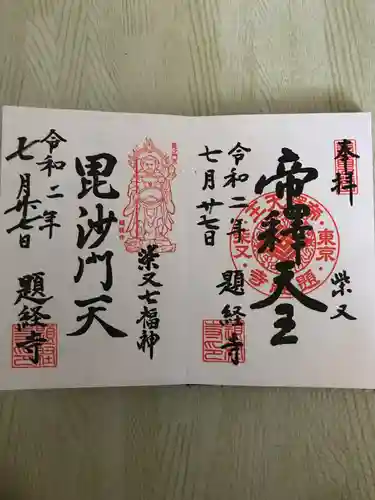 奉拝
柴又
帝釋天王
東京
柴又
題経寺
令和二年
七月廿七日
柴又七福神
毘沙門天
題経寺
令和二年
七月廿七日